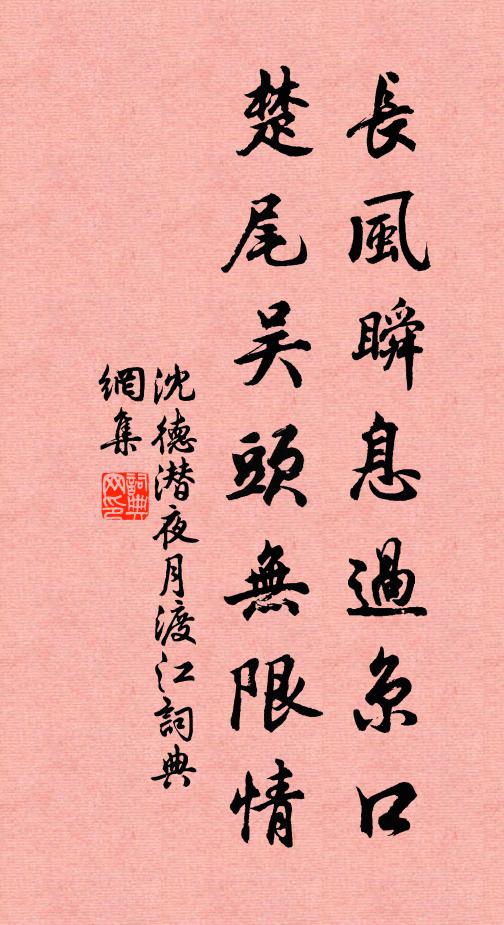 長風瞬息過京口
楚尾吴頭無限情
沈德潜夜月渡江詞典
網集
詞典
网印